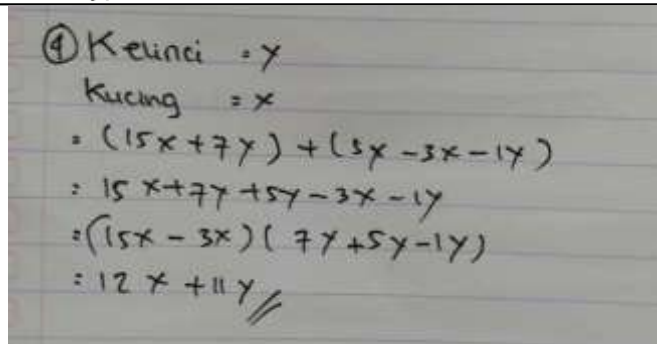 ④ Kelinci = y
Kucing = x
= (15x + 7y) + (5y - 3x - 1y)
= 15x + 7y + 5y - 3x - 1y
= (15x - 3x) ( 7y + 5y - 1y)
= 12x + 11y //